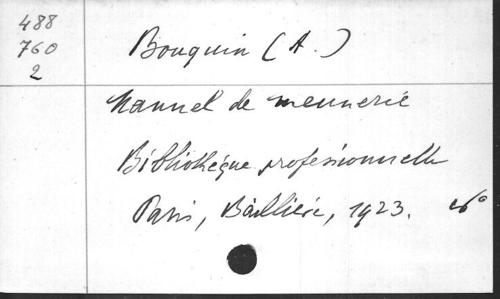 488
760
2
Bouquin (A.)
Manuel de meunerie
Bibliothèque professionnelle
Paris, Baillière, 1923.